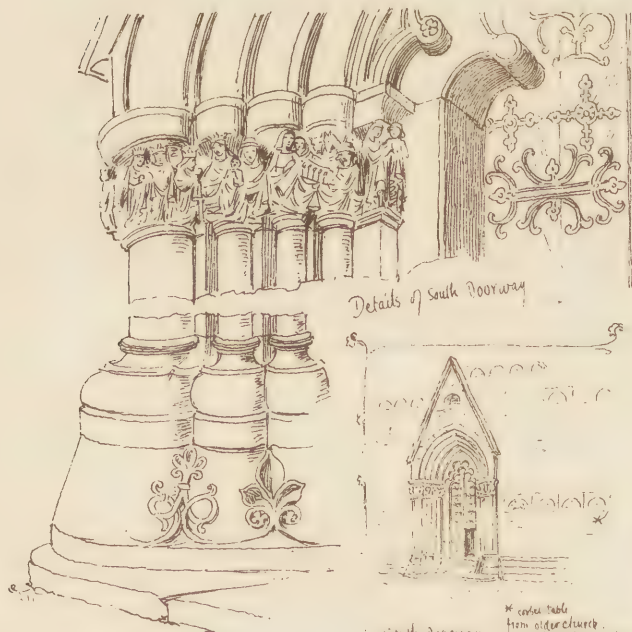 Details of South Doorway
* corbel table
from older church.